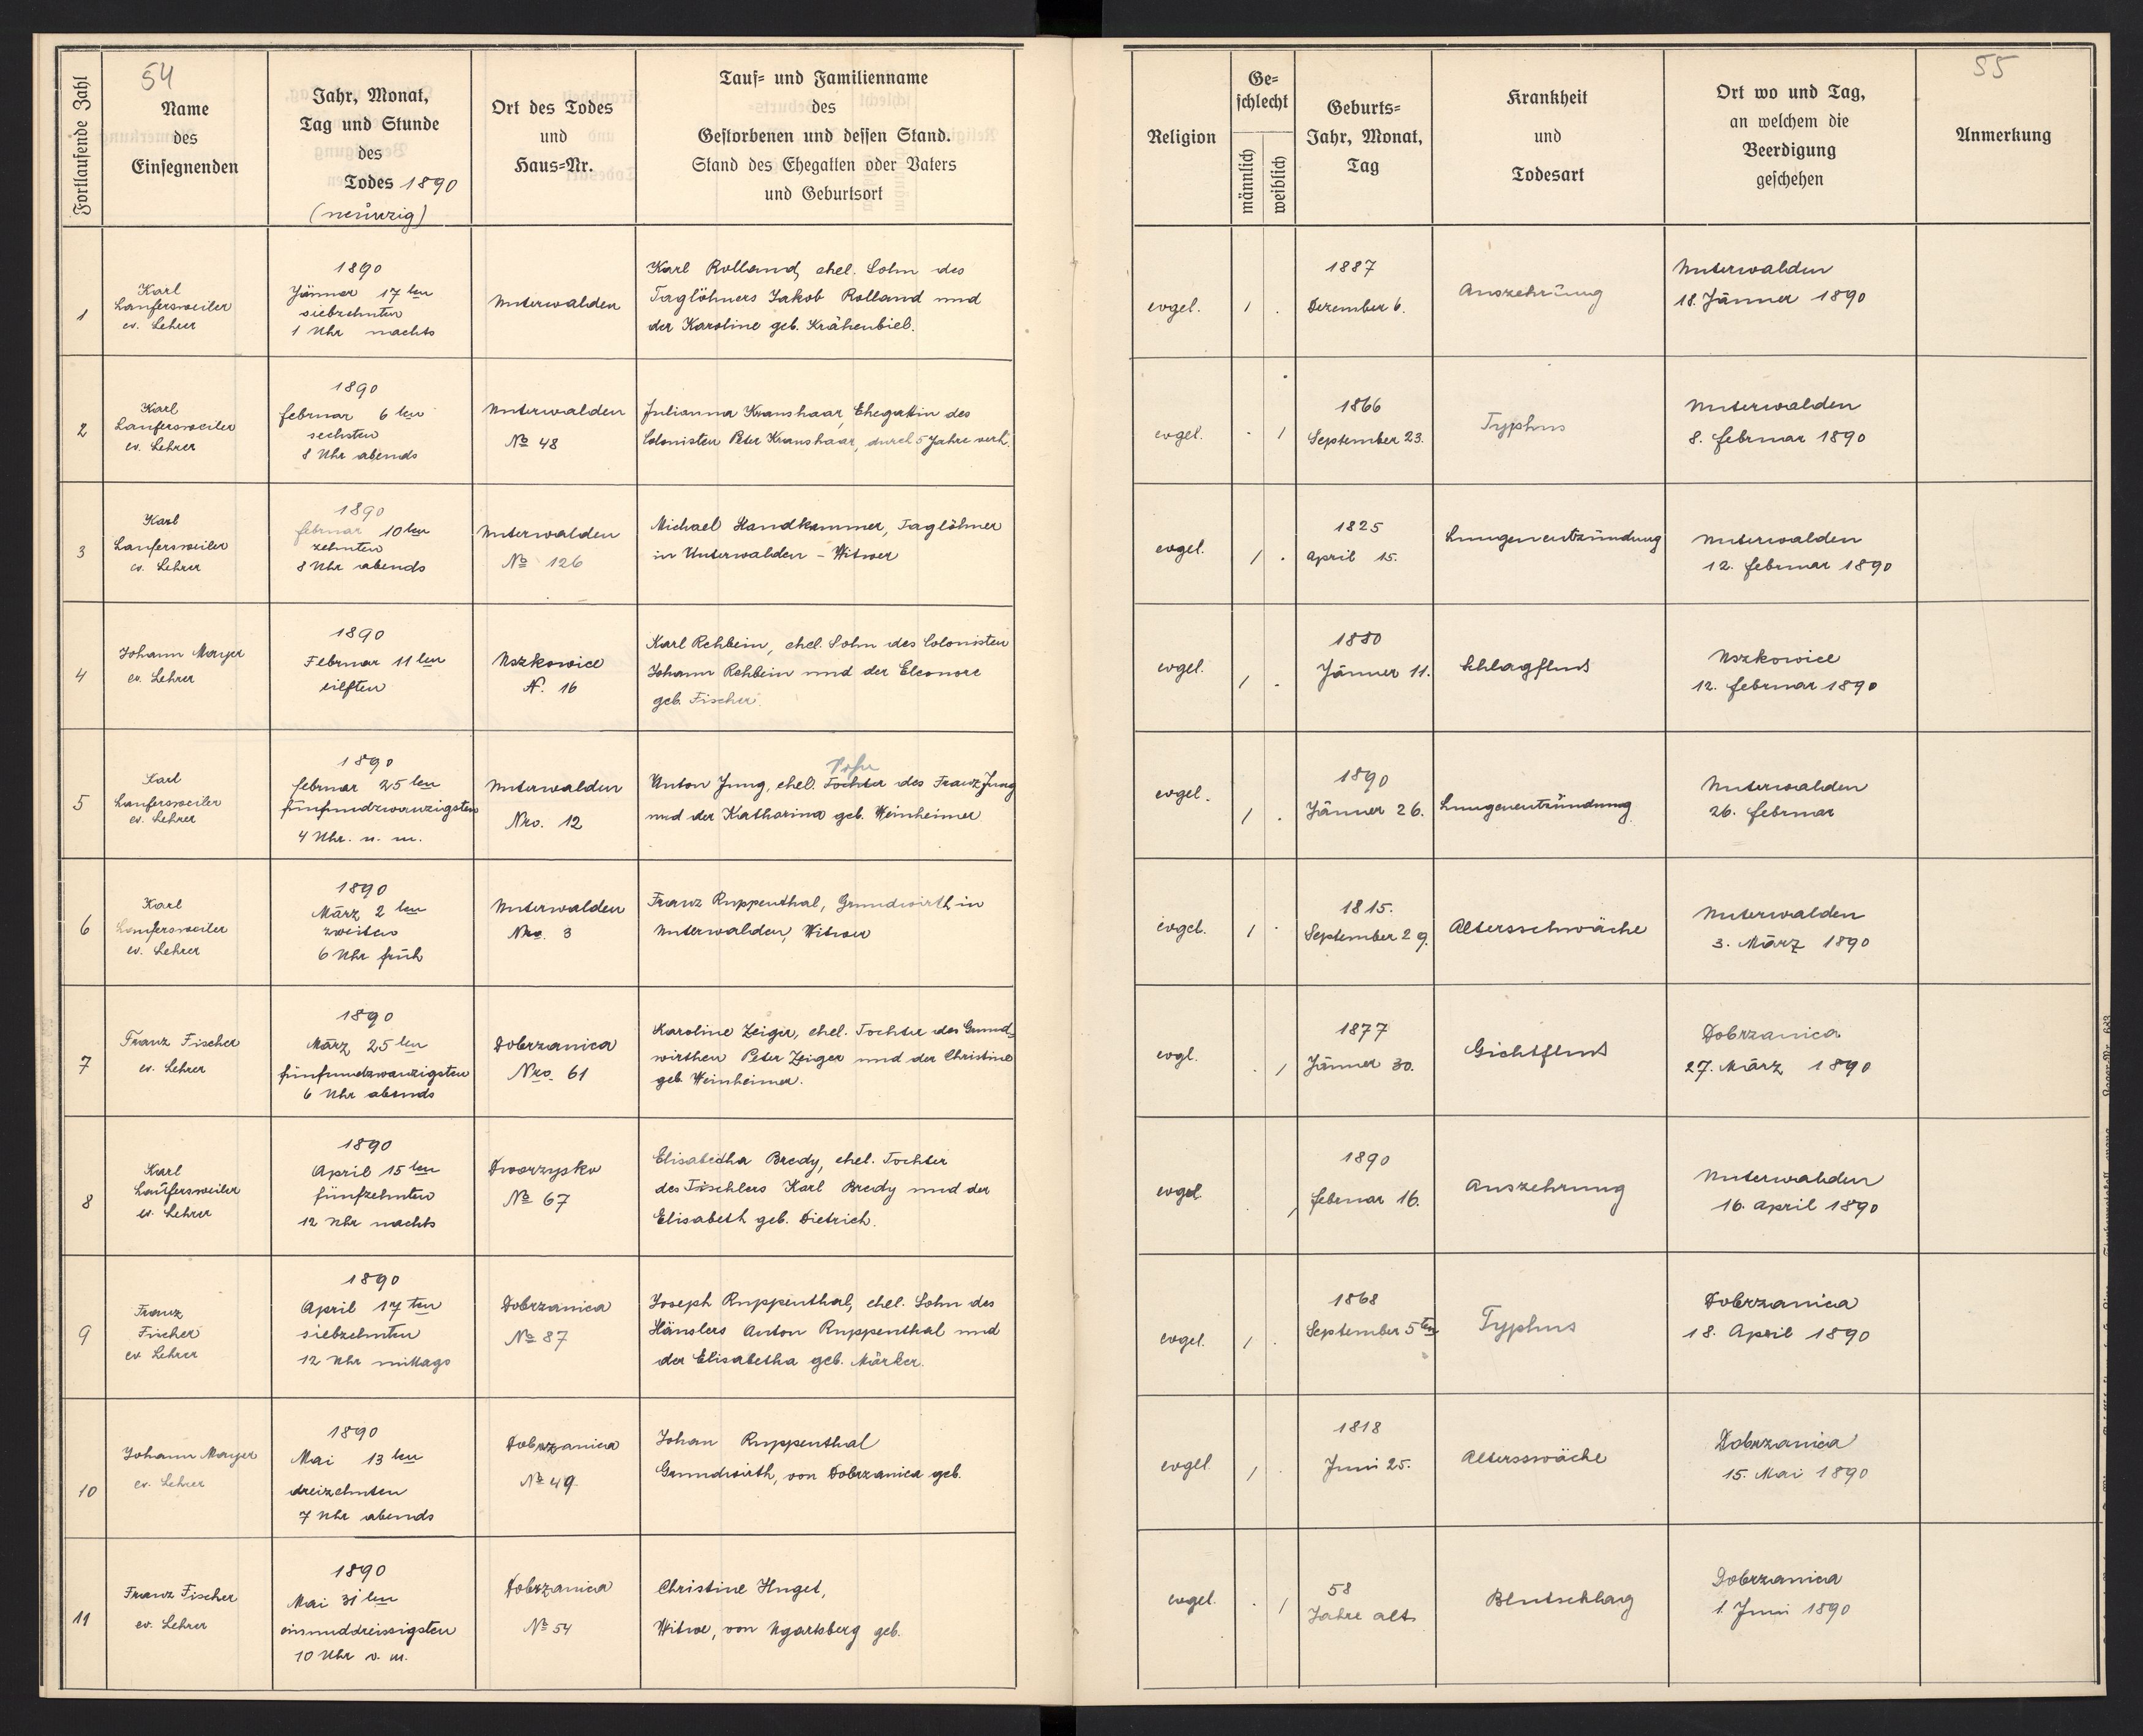 54
Fortlaufende Zahl
Name
des
Einsegnenden
Jahr, Monat,
Tag und Stunde
des
Todes 1890
(neunzig)
Ort des Todes
und
Haus=Nr.
Tauf= und Familienname
des
Gestorbenen und dessen Stand.
Stand des Ehegatten oder Vaters
und Geburtsort
Religion
Ge=
schlecht
männlich
weiblich
Geburts=
Jahr, Monat,
Tag
Krankheit
und
Todesart
Ort wo und Tag,
an welchem die
Beerdigung
geschehen
55
Anmerkung
1
Karl
Laufersweiler
ev. Lehrer
1890
Jänner 17ten
siebzehnten
1 Uhr nachts
Unterwalden
Karl Rolland, ehel. Sohn des
Taglöhners Jakob Rolland und
der Karoline geb. Krähenbiel.
evgel.
1 .
1887
Dezember 6.
Auszehrung
Unterwalden
18. Jänner 1890
2
Karl
Laufersweiler
ev. Lehrer
1890
februar 6ten
sechsten
8 Uhr abends
Unterwalden
No 48
Julianna Kranshaar, Ehegattin des
Colonisten Peter Kranshaar, durch 5 Jahre verh.
evgel.
. 1
1866
September 23.
Typhus
Unterwalden
8. februar 1890
3
Karl
Laufersweiler
ev. Lehrer
1890
februar 10ten
zehnten
8 Uhr abends
Unterwalden
No 126
Michael Handkammer, Taglöhner
in Unterwalden - Witwer
evgel.
1 .
1825
April 15.
Lungenentzündung
Unterwalden
12. februar 1890
4
Johann Mayer
ev. Lehrer
1890
Februar 11ten
eilften
Uszkowice
N. 16
Karl Rehbein, ehel. Sohn des Colonisten
Johann Rehbein und der Eleonore
geb. Fischer.
evgel.
1 .
1880
Jänner 11.
Schlagfluss
Uszkowice
12. februar 1890
5
Karl
Laufersweiler
ev. Lehrer
1890
februar 25ten
fünfundzwanzigsten
4 Uhr. n. m.
Unterwalden
Nro. 12
Sohn
Anton Jung, ehel. Tochter des Franz Jung
und der Katharina geb. Weinheimer.
evgel.
1 .
1890
Jänner 26.
Lungenentzündung
Unterwalden
26. februar
6
Karl
Laufersweiler
ev. Lehrer
1890
März 2ten
zweiten
6 Uhr früh
Unterwalden
Nro. 3
Franz Ruppenthal, Grundwirth in
Unterwalden, Witwer
evgel.
1 .
1815.
September 29.
Altersschwäche
Unterwalden
3. März 1890
7
Franz Fischer
ev. Lehrer
1890
März 25ten
fünfundzwanzigsten
6 Uhr abends
Dobrzanica
Nro. 61
Karoline Zeiger, ehel. Tochter des Grund=
wirthen Peter Zeiger und der Christine
geb. Weinheimer.
evgl.
. 1
1877
Jänner 30.
Gichtfluss
Dobrzanica
27. März 1890
8
Karl
Laufersweiler
ev. Lehrer
1890
April 15ten
fünfzehnten
12 Uhr nachts
Dworzysko
No 67
Elisabetha Bredy, ehel. Tochter
des Tischlers Karl Bredy und der
Elisabeth geb. Dietrich.
evgel.
. 1
1890
februar 16.
Auszehrung
Unterwalden
16. April 1890
9
Franz
Fischer
ev Lehrer
1890
April 17ten
siebzehnten
12 Uhr mittags
Dobrzanica
No 87
Joseph Ruppenthal, ehel. Sohn des
Häuslers Anton Ruppenthal und
der Elisabetha geb. Märker.
evgel.
1 .
1868
September 5ten
Typhus
Dobrzanica
18. April 1890
10
Johann Mayer
ev. Lehrer
1890
Mai 13ten
dreizehnten
7 Uhr abends
Dobrzanica
No 49
Johan Ruppenthal
Grundwirth, von Dobrzanica geb.
evgel.
1 .
1818
Juni 25.
Alterswäche
Dobrzanica
15. Mai 1890
11
Franz Fischer
ev. Lehrer
1890
Mai 31ten
einunddreissigsten
10 Uhr v. m.
Dobrzanica
No 54
Christine Huget,
Witwe, von Ugartsberg geb.
evgel.
. 1
58
Jahre alt
Blutschlag
Dobrzanica
1. Juni 1890